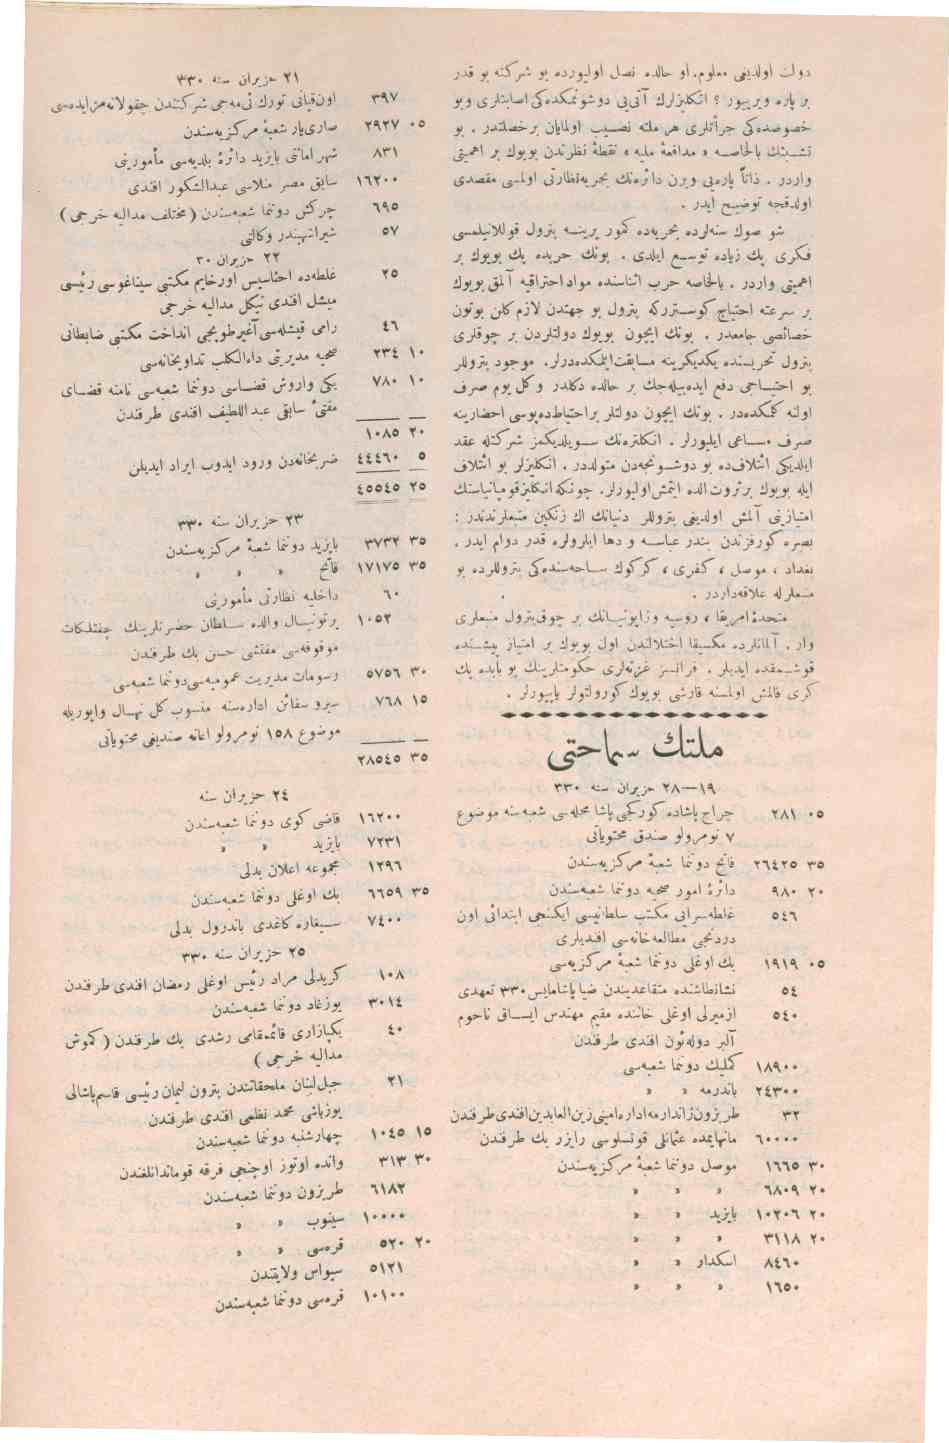 دولت اولدیغی معلوم. او حالده نصل اولیورده بو شركته بو قدر
بر پاره ویریبور ؟ انكلیزلرك آتی‌یی دوشونمكده‌كی اصابتلری وبو
خصوصده‌كی جرأتلری هر ملته نصیب اولمایان برخصلتدر . بو
تشبثك بالخاصه « مدافعهٔ ملیه » نقطهٔ نظرندن بویوك بر اهمیتی
واردر . ذاتاً پاره‌یی ویرن دائره‌نك بحریه‌نظارتی اولمسی مقصدی
اولدقجه توضیح ایدر .
شو صوك سنه‌لرده بحریه‌ده كمور یرینه پترول قوللانیلمسی
فكری پك زیاده توسع ایلدی . بونك حربده پك بویوك بر
اهمیتی واردر . بالخاصه حرب اثناسنده مواد احتراقیه آلمق بویوك
بر سرعته احتیاج كوستررکه پترول بو جهتدن لازم كلن بوتون
خصائصی جامعدر . بونك ایچون بویوك دولتلردن بر چوقلری
پترول تحریسنده یكدیكرینه مسابقت ایتمكده‌درلر. موجود پتروللر
بو احتیاجی دفع ایده‌بیله‌جك بر حالده دكلدر و كل یوم صرف
اولنه كلمكده‌در . بونك ایچون دولتلر بر احتیاط ده‌پوسی احضارینه
صرف مساعی ایلیورلر . انكلتره‌نك سویلدیكمز شركتله عقد
ایلدیكی ائتلاف‌ده بو دوشونجه‌دن متولددر . انكلیزلر بو ائتلاف
ایله بویوك بر ثروت الده ایتمش اولیورلر. چونكه انكلیز قومپانیاسنك
امتیازینی آلمش اولدیغی پتروللر دنیانك اك زنكین منبعلرندندر :
بصره كورفزندن بندر عباسه و دها ایلرولره قدر دوام ایدر .
بغداد ، موصل ، كفری ، كركوك ساحه‌سنده‌كی پتروللرده بو
منبعلرله علاقه‌داردر .
متحدهٔ امریقا ، روسیه و ژاپونیانك بر چوق پترول منبعلری
وار . آلمانلرده مكسیقا اختلالندن اول بویوك بر امتیاز پیشنده
قوشمقده ایدیلر . فرانسز غزته‌لری حكومتلرینك بو بابده پك
كری قالمش اولمسنه قارشی بویوك كورولتولر یاپیورلر .
ملتك سماحتی
١٩—٢٨ حزیران سنه ٣٣٠
٠٥ ٢٨١ جراح پاشاده كوركجی پاشا محله‌سی شعبه‌سنه موضوع
٧ نومرولو صندق محتویاتی
٣٥ ٢٦٤٢٥ فاتح دوننما شعبهٔ مركزیه‌سندن
٢٠ ٩٨٠ دائرهٔ امور صحیه دوننما شعبه‌سندن
٥٤٦ غلطه‌سرایی مكتب سلطانیسی ایكنجی ابتدائی اون
دردنجی مطالعه‌خانه‌سی افندیلری
٠٥ ١٩١٩ بك اوغلی دوننما شعبهٔ مركزیه‌سی
٥٤ نشانطاشنده متقاعدیندن ضیا پاشا مایس ٣٣٠ تعهدی
٥٤٠ ازمیرلی اوغلی خاننده مقیم مهندس ایساق ناحوم
آلبر دوله‌ئون افندی طرفندن
١٨٩٠٠ كملیك دوننما شعبه‌سی
٢٤٣٠٠ باندرمه » »
٣٢ طربزون ژاندارمه اداره امینی زین‌العابدین افندی طرفندن
٦٠٠٠٠ مانهایمده عثمانلی قونسلوسی رایزر بك طرفندن
٣٠ ١٦٦٥ موصل دوننما شعبهٔ مركزیه‌سندن
٢٠ ٦٨٠٩ » » »
٢٠ ١٠٢٠٦ بایزید » »
٢٠ ٣١١٨ » » »
٨٤٦٠ اسكدار » »
١٦٥٠ » » »
٢١ حزیران سنه ٣٣٠
٣٩٧ اون‌قپانی تورك ئی‌مه‌جی شركتندن چفولانه‌مزایده‌سی
٠٥ ٢٩٢٧ صاری‌یار شعبهٔ مركزیه‌سندن
٨٣١ شهر امانتی بایزید دائرهٔ بلدیه‌سی مأمورینی
١٦٢٠٠ سابق مصر منلاسی عبدالشكور افندی
٦٩٥ چركش دوننما شعبه‌سندن ( مختلف مدالیه خرجی )
٥٧ شیراتهبندر وكالتی
٢٢ حزیران ٣٠
٢٥ غلطه‌ده احتاسیس اورخایم مكتبی سیناغوسی رئیسی
میشل افندی نیكل مدالیه خرجی
٤٦ رامی قیشله‌سی آغیر طوپچی انداخت مكتبی ضابطانی
١٠ ٢٣٤ صحیه مدیریتی داءالكلب تداویخانه‌سی
١٠ ٧٨٠ یكی واروش قضاسی دوننما شعبه‌سی نامنه قضای
مفتیٔ سابقی عبداللطیف افندی طرفندن
٢٠ ١٠٨٥
٥ ٤٤٤٦٠ ضربخانه‌دن ورود ایدوب ایراد ایدیلن
٢٥ ٤٥٥٤٥
٢٣ حزیران سنه ٣٣٠
٣٥ ٣٧٣٢ بایزید دوننما شعبهٔ مركزیه‌سندن
٣٥ ١٧١٧٥ فاتح » » »
٦٠ داخلیه نظارتی مأمورینی
١٠٥٢ پرتونیال والده سلطان حضرتلرینك چفتلكات
موقوفه‌سی مفتشی حسن بك طرفندن
٣٠ ٥٧٥٦ رسومات مدیریت عمومیه‌سی دوننما شعبه‌سی
١٥ ٧٦٨ سیرو سفائن اداره‌سنه منسوب كل نهال واپوریله
موضوع ١٥٨ نومرولو اعانه صندیغی محتویاتی
٣٥ ٢٨٥٤٥
٢٤ حزیران سنه
١٦٢٠٠ قاضی كوی دوننما شعبه‌سندن
٧٢٣١ بایزید » »
١٢٩٦ مجموعه اعلان بدلی
٣٥ ٦٦٥٩ بك اوغلی دوننما شعبه‌سندن
٧٤٠٠ سیغاره كاغدی باندرول بدلی
٢٥ حزیران سنه ٣٣٠
١٠٨ كریدلی مراد رئیس اوغلی رمضان افندی طرفندن
٣٠١٤ یوزغاد دوننما شعبه‌سندن
٤٠ بكپازاری قائمقامی رشدی بك طرفندن ( كموش
مدالیه خرجی )
٢١ جبل لبنان ملحقاتندن بترون لیمان رئیسی قاسم‌پاشالی
یوزباشی محمد نظمی افندی طرفندن
١٥ ١٠٤٥ چهارشنبه دوننما شعبه‌سندن
٣٠ ٣١٣ وانده اوتوز اوچنجی فرقه قوماندانلغندن
٦١٨٢ طربزون دوننما شعبه‌سندن
١٠٠٠٠ سینوب » »
٢٠ ٥٢٠ قره‌سی » »
٥١٢١ سیواس ولایتندن
١٠١٠٠ قره‌سی دوننما شعبه‌سندن